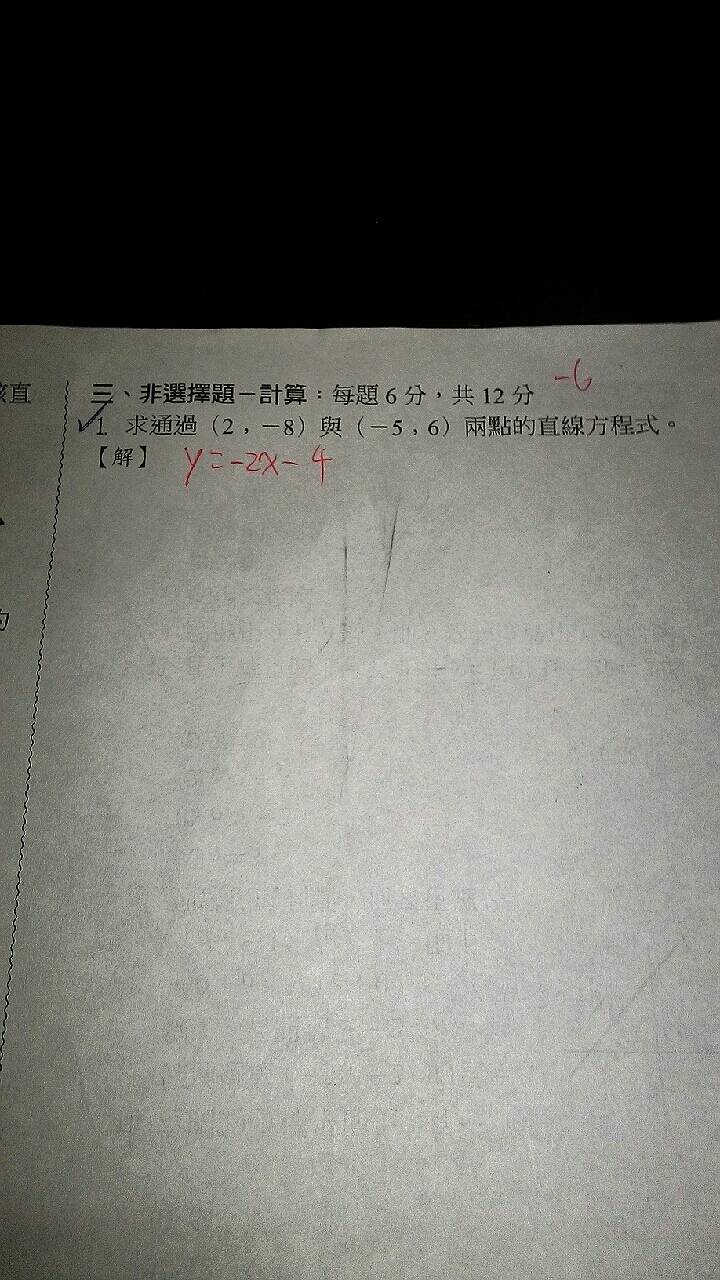 -6
三、非選擇題－計算：每題6分，共12分
1. 求通過（2，－8）與（－5，6）兩點的直線方程式。
【解】 y=-2x-4
直